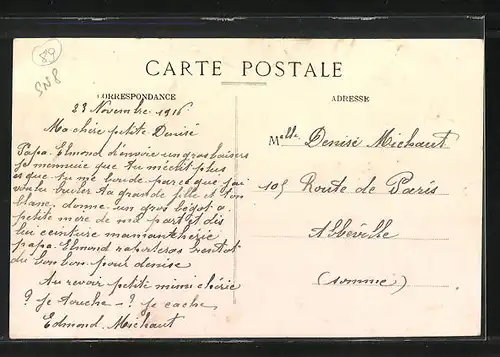 89
SN8
CARTE POSTALE
CORRESPONDANCE
ADRESSE
23 Novembre 1916
Ma chére petite Denise
Papa Elmond d'envoie un gros baisers
je mennuie que
es que tu me boude parce que j'ai
voulu ta grande fille et ton
blanc, donne un gros a
petite mére de ma part et dis
lui ceinture
papa Elmond raporteras bientot
du bon bon pour denise
Au revoir petite mimi chérie
? Je touche - ? je cache,
Edmond Michaut
Melle Denise Michaut
105 Route de Paris
Abbéville
(somme)